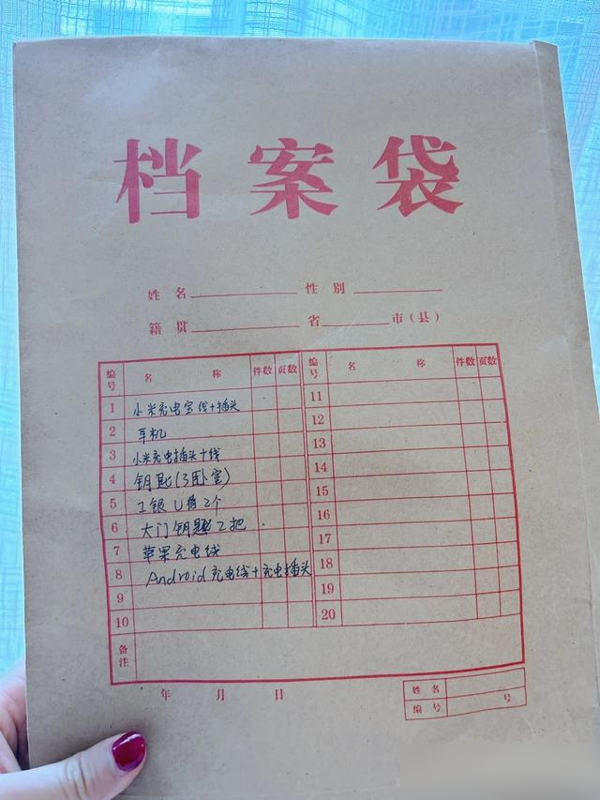 档案袋
姓名 性别
籍贯 省 市（县）
编号 名称 件数 页数 编号 名称 件数 页数
1 小米充电宝线+插头 11
2 耳机 12
3 小米充电插头+线 13
4 钥匙(3卧室) 14
5 工银U盾2个 15
6 大门钥匙2把 16
7 苹果充电线 17
8 Android充电线+充电插头 18
9 19
10 20
备注
年 月 日
姓名
编号 号